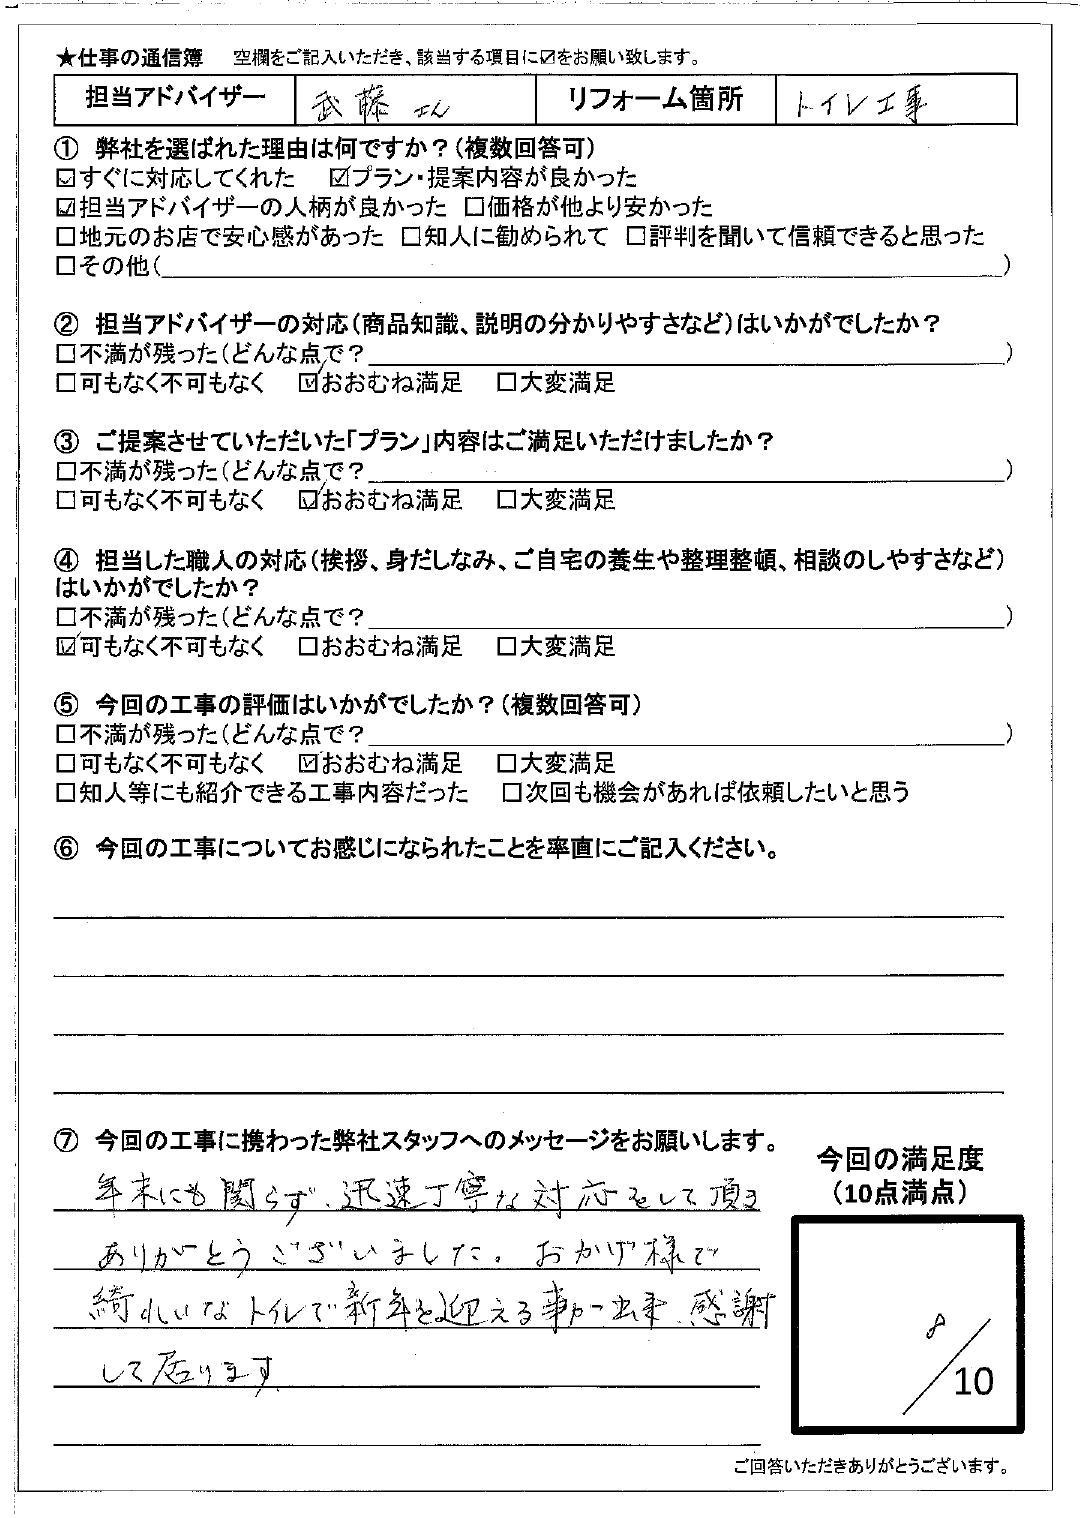 ★仕事の通信簿　空欄をご記入いただき、該当する項目に☑をお願い致します。
担当アドバイザー　武藤さん　リフォーム箇所　トイレ工事
①　弊社を選ばれた理由は何ですか？（複数回答可）
☑すぐに対応してくれた　☑プラン・提案内容が良かった
☑担当アドバイザーの人柄が良かった　□価格が他より安かった
□地元のお店で安心感があった　□知人に勧められて　□評判を聞いて信頼できると思った
□その他（　）
②　担当アドバイザーの対応（商品知識、説明の分かりやすさなど）はいかがでしたか？
□不満が残った（どんな点で？　）
□可もなく不可もなく　☑おおむね満足　□大変満足
③　ご提案させていただいた「プラン」内容はご満足いただけましたか？
□不満が残った（どんな点で？　）
□可もなく不可もなく　☑おおむね満足　□大変満足
④　担当した職人の対応（挨拶、身だしなみ、ご自宅の養生や整理整頓、相談のしやすさなど）
はいかがでしたか？
□不満が残った（どんな点で？　）
☑可もなく不可もなく　□おおむね満足　□大変満足
⑤　今回の工事の評価はいかがでしたか？（複数回答可）
□不満が残った（どんな点で？　）
□可もなく不可もなく　☑おおむね満足　□大変満足
□知人等にも紹介できる工事内容だった　□次回も機会があれば依頼したいと思う
⑥　今回の工事についてお感じになられたことを率直にご記入ください。
⑦　今回の工事に携わった弊社スタッフへのメッセージをお願いします。
年末にも関らず、迅速丁寧な対応をして頂き
ありがとうございました。おかげ様で
綺れいなトイレで新年を迎える事が出来、感謝
して居ります
今回の満足度
（10点満点）
8／10
ご回答いただきありがとうございます。